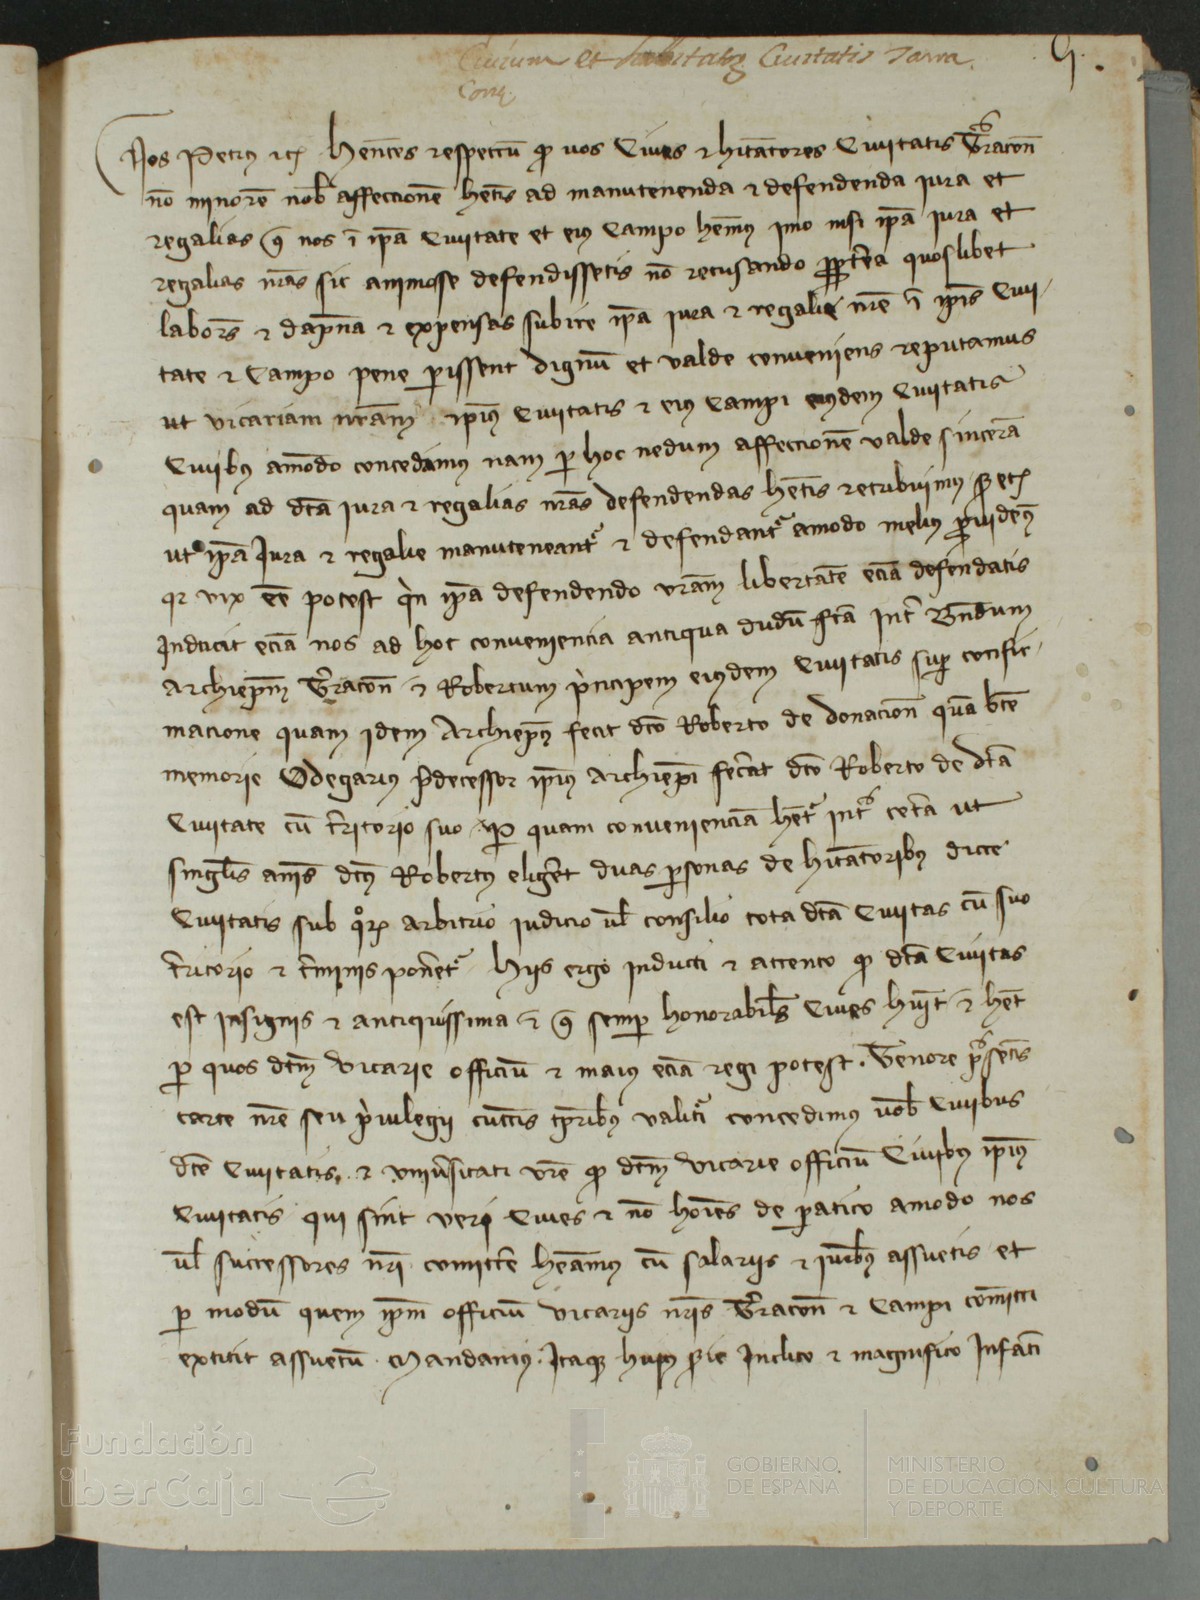 Civium et habitator̄ Civitatis Tarra
Cone.
Nos Petrus etc̄ Hentes respectū q̄ vos Cives ⁊ hitatores Civitatis Tracoñ
nō minorē nob affeccionē hētis ad manutenenda ⁊ defendenda iura et
regalias q̄ nos ī ipā Civitate et eius Campo hem̄us imo nisi ipā iura et
regalias nr̄as sic animose defendissetis nō recusando propterea quoslibet
labores ⁊ dapna ⁊ expensas subire ipā iura ⁊ regalie nr̄e ī ipīs Civi
tate ⁊ Campo pene perissent dignū et valde conveniens reputamus
ut vicariam nr̄am ipīus Civitatis ⁊ eius Campi eiusdem Civitatis
Civibus amodo concedamus nam p hoc nedum affeccionē valde sincerā
quam ad dc̄a iura ⁊ regalias nr̄as defendendas hētis retribuimus etc̄
ut ipā Jura ⁊ regalie manuteneant̄ ⁊ defendant̄ amodo melius providem̄us
qr vix eē potest quin ipā defendendo vr̄am libertatē eciā defendatis
Inducit eciā nos ad hoc conveniencia antiqua dudū fc̄a int̄
Archiep̄m Tracoñ ⁊ Robertum principem eiusdem Civitatis sup confir
macione quam idem Archiep̄us fecit dc̄o Roberto de donacioñ quā bt̄e
memorie Odegarius predecessor ipīus Archiep̄i fecerat dc̄o Roberto de dc̄a
Civitate cū territorio suo p quam convenienciā het̄ int̄ cetera ut
singl̄is anīs dc̄us Robertus eligeret duas personas de hitatoribus dicte
Civitatis sub quor̄ arbitrio iudicio ul̄ consilio tota dc̄a Civitas cū suo
territorio ⁊ terminis poneret̄ Hiis ergo inducti ⁊ attento q̄ dc̄a Civitas
est insignis ⁊ antiquissima ⁊ q̄ semper honorabiles Cives huit ⁊ het
p quos dc̄m vicarie officiū ⁊ maius eciā regi potest. Tenore presētis
carte nr̄e seu privilegii cunctis tpribus valitur̄ concedimus vob Civibus
dc̄e Civitatis. ⁊ universitati vr̄e q̄ dc̄m vicarie officiū Civibus ipīus
Civitatis qui sint veri Cives ⁊ nō hoīes de paratico amodo nos
ul̄ successores nr̄i comittere heamus cū salariis ⁊ iuribus assuetis et
p modū quem ipm̄ officiū vicariis nr̄is Tracoñ ⁊ Campi comitti
extitit assuetū. Mandamus. Itaque huius serie Inclito ⁊ magnifico Infāti
Fundación
iberCaja
GOBIERNO
DE ESPAÑA
MINISTERIO
DE EDUCACIÓN, CULTURA
Y DEPORTE